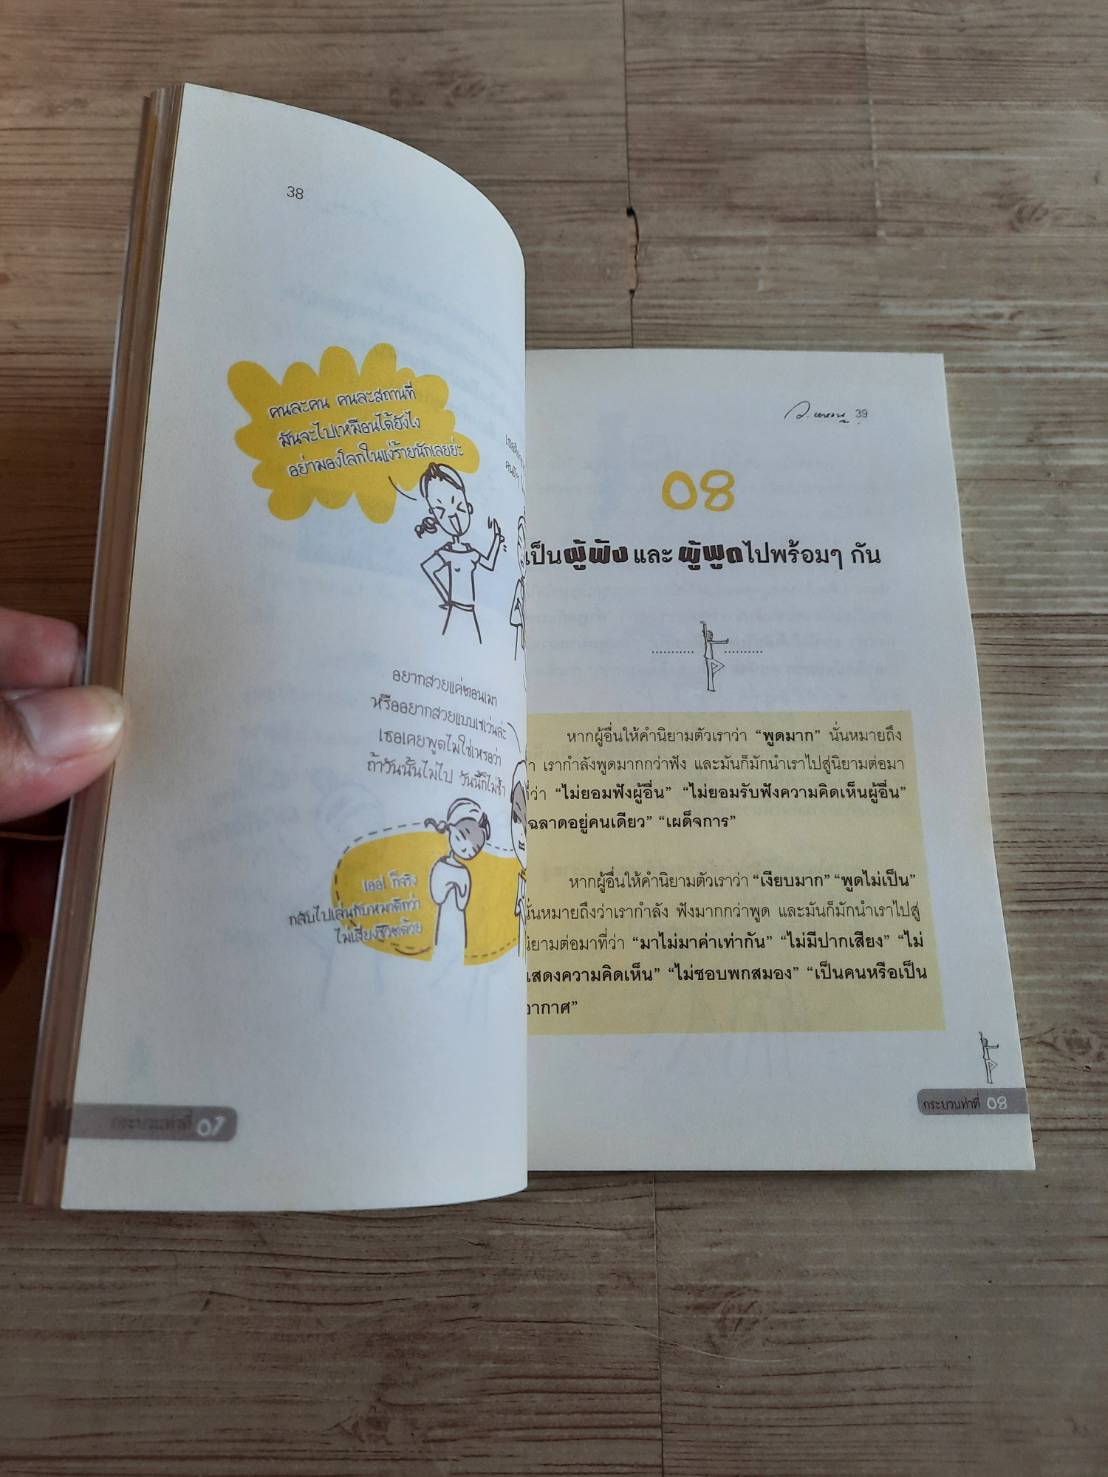 38
คนละคน คนละสถานที่
มันจะไปเหมือนได้ยังไง
อย่ามองโลกในแง่ร้ายนักเลยย่ะ
อยากสวยแค่ตอนเมา
หรืออยากสวยแบบเซเว่นล่ะ
เธอเคยพูดไม่ใช่เหรอว่า
ถ้าวันนั้นไม่ไป วันนี้ก็ไม่ช้ำ
เออ! ก็จริง
กลับไปเล่นกับหมาดีกว่า
ไม่เสี่ยงชีวิตด้วย
กระบวนท่าที่ 07
39
08
เป็นผู้ฟัง และ ผู้พูดไปพร้อมๆ กัน
หากผู้อื่นให้คำนิยามตัวเราว่า “พูดมาก” นั่นหมายถึง
เรากำลังพูดมากกว่าฟัง และมันก็มักนำเราไปสู่นิยามต่อมา
“ไม่ยอมฟังผู้อื่น” “ไม่ยอมรับฟังความคิดเห็นผู้อื่น”
ฉลาดอยู่คนเดียว” “เผด็จการ”
หากผู้อื่นให้คำนิยามตัวเราว่า “เงียบมาก” “พูดไม่เป็น”
นั้นหมายถึงว่าเรากำลัง ฟังมากกว่าพูด และมันก็มักนำเราไปสู่
นิยามต่อมาที่ว่า “มาไม่มาค่าเท่ากัน” “ไม่มีปากเสียง” “ไม่
แสดงความคิดเห็น” “ไม่ชอบพกสมอง” “เป็นคนหรือเป็น
อากาศ”
กระบวนท่าที่ 08